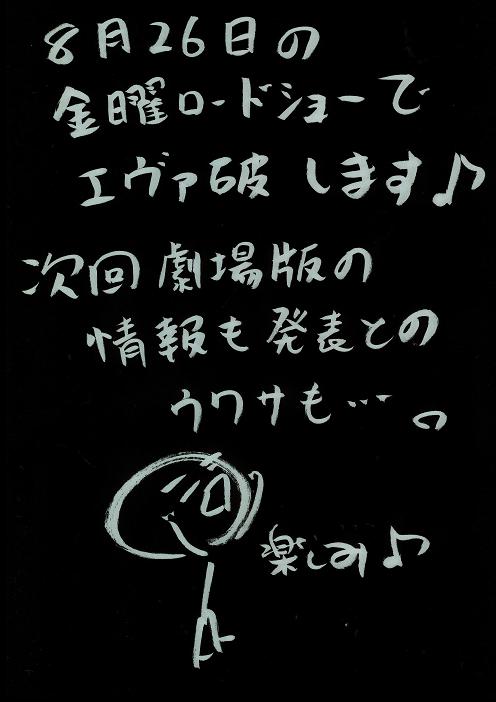 8月26日の
金曜ロードショーで
エヴァ破します♪
次回劇場版の
情報も発表との
ウワサも…。
楽しみ♪